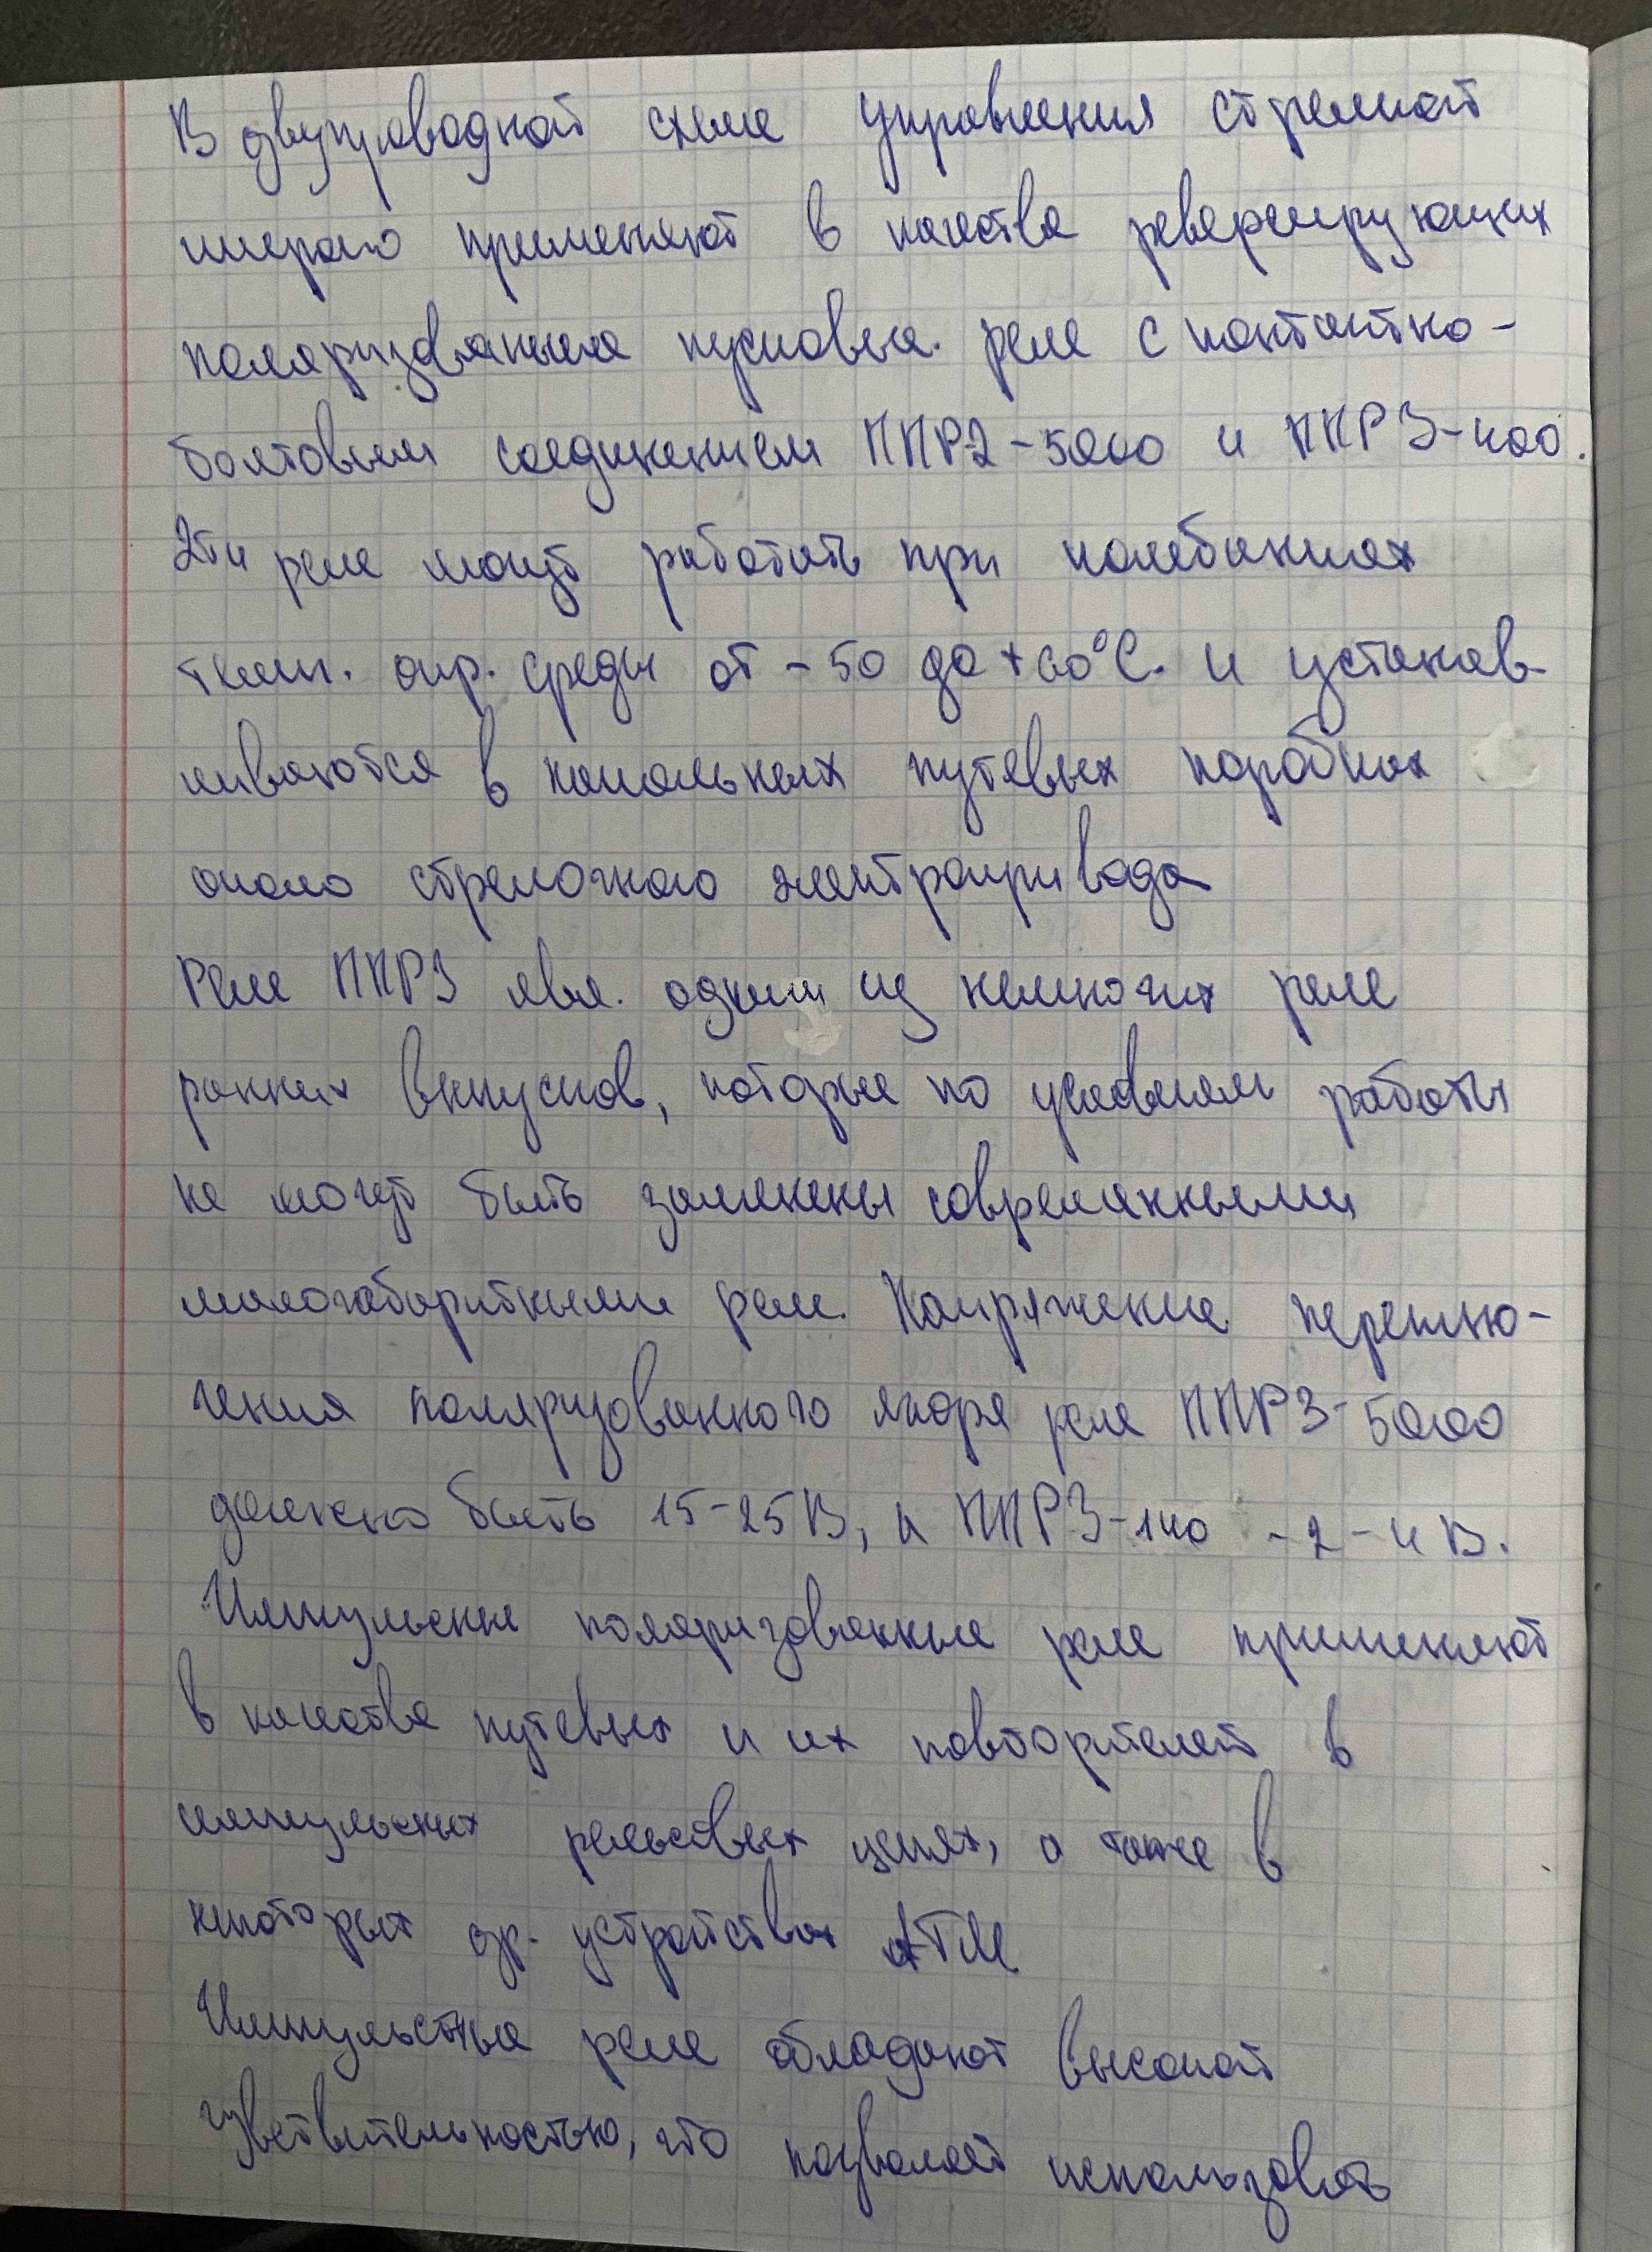 В двупроводной схеме управления стрелкой
широко применяют в качестве реверсирующих
поляризованные пусковые реле с контактно-
болтовым соединением ППР2-5000 и ППР3-400.
Эти реле могут работать при колебаниях
темп. окр. среды от -50 до +60°С. и устанав-
ливаются в напольных путевых коробках
около стрелочного электропривода
Реле ППР3 явл. одним из немногих реле
ранних выпусков, которые по условиям работы
не могут быть заменены современными
малогабаритными реле. Напряжение переклю-
чения поляризованного якоря реле ППР3-5000
должно быть 15-25В, а ППР3-140 - 2-4 В.
Импульсные поляризованные реле применяют
в качестве путевых и их повторителей в
импульсных рельсовых цепях, а также в
некоторых др. устройствах АТМ
Импульсные реле обладают высокой
чувствительностью, что позволяет использовать